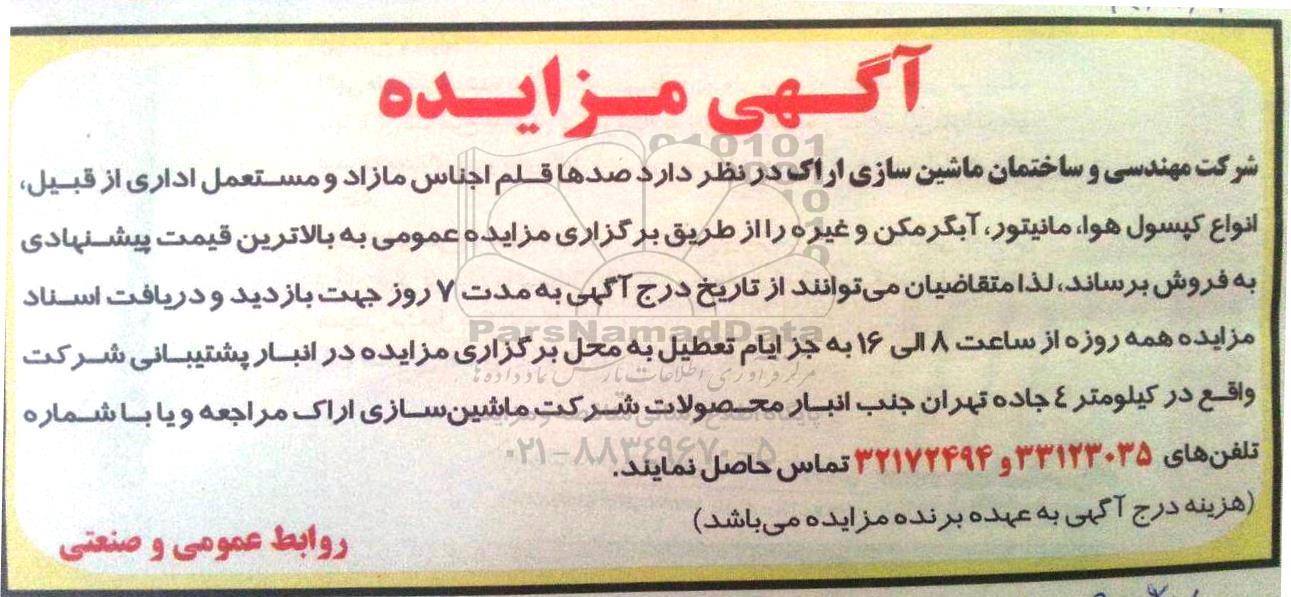 آگهی مزایده
شرکت مهندسی و ساختمان ماشین سازی اراک در نظر دارد صدها قلم اجناس مازاد و مستعمل اداری از قبیل،
انواع کپسول هوا، مانیتور، آبگرمکن و غیره را از طریق برگزاری مزایده عمومی به بالاترین قیمت پیشنهادی
به فروش برساند، لذا متقاضیان می‌توانند از تاریخ درج آگهی به مدت ۷ روز جهت بازدید و دریافت اسناد
ParsNamadData
مزایده همه روزه از ساعت ۸ الی ۱۶ به جز ایام تعطیل به محل برگزاری مزایده در انبار پشتیبانی شرکت
مرکز فرآوری اطلاعات پارس نماد داده ها
واقع در کیلومتر ٤ جاده تهران جنب انبار محصولات شرکت ماشین‌سازی اراک مراجعه و یا با شماره
تلفن‌های ۳۳۱۲۳۰۳۵ و ۳۲۱۷۲۴۹۴ تماس حاصل نمایند.
۰۲۱-۸۸۳۴۹۶۷۰-۵
(هزینه درج آگهی به عهده برنده مزایده می‌باشد)
روابط عمومی و صنعتی